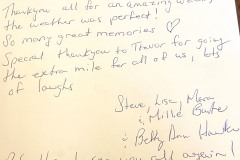 Thankyou all for an amazing week,
the weather was perfect!
So many great memories ♡
Special thankyou to Trevor for going
the extra mile for all of us, lots
of laughs
Steve, Lisa, Mara
& Millie Bunter
& Betty Ann
you all again!